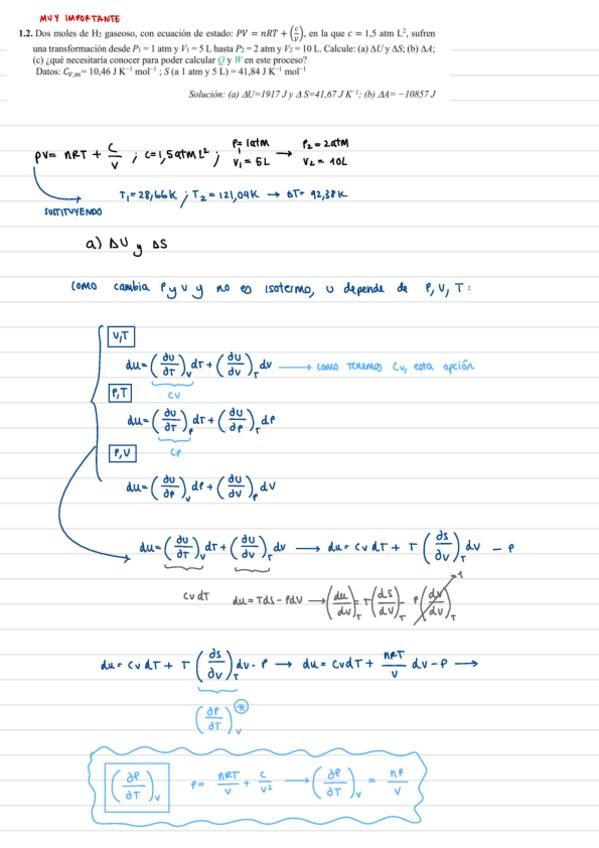 MUY IMPORTANTE
1.2. Dos moles de H₂ gaseoso, con ecuación de estado: PV = nRT + (c/V), en la que c = 1,5 atm L², sufren
una transformación desde P₁ = 1 atm y V₁ = 5 L hasta P₂ = 2 atm y V₂ = 10 L. Calcule: (a) ΔU y ΔS; (b) ΔA;
(c) ¿qué necesitaría conocer para poder calcular Q y W en este proceso?
Datos: C_V,m = 10,46 J K⁻¹ mol⁻¹; S (a 1 atm y 5 L) = 41,84 J K⁻¹ mol⁻¹
Solución: (a) ΔU=1917 J y ΔS=41,67 J K⁻¹; (b) ΔA= −10857 J
PV = nRT + C/V ; C=1,5 atm L² ; P₁= 1atm V₁ = 5L → P₂ = 2atm V₂ = 10L
SUSTITUYENDO
T₁ = 28,66K ; T₂ = 121,04K → ΔT= 92,38K
a) ΔU y ΔS
Como cambia P y V y no es isotermo, U depende de P, V, T:
V,T
dU = (∂U/∂T)_V dT + (∂U/∂V)_T dV → como tenemos Cv, esta opción
CV
P,T
dU = (∂U/∂T)_P dT + (∂U/∂P)_T dP
CP
P,V
dU = (∂U/∂P)_V dP + (∂U/∂V)_P dV
dU = (∂U/∂T)_V dT + (∂U/∂V)_T dV → dU = CV dT + T (∂S/∂V)_T dV - P
CV dT dU = TdS - PdV → (dU/dV)_T = T (dS/dV)_T - P (dV/dV)_T 1
dU = CV dT + T (∂S/∂V)_T dV - P → dU = CV dT + nRT/V dV - P →
(∂P/∂T)_V *
(∂P/∂T)_V P = nRT/V + C/V² → (∂P/∂T)_V = nR/V